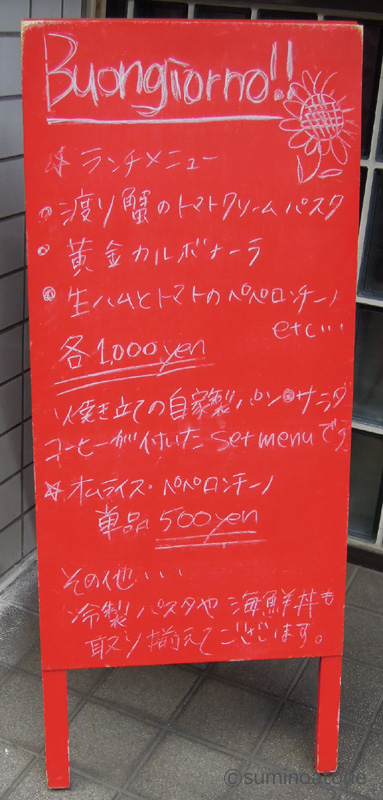 Buongiorno!!
☆ランチメニュー
・渡り蟹のトマトクリームパスタ
・黄金カルボナーラ
・生ハムとトマトのペペロンチーノ
etc...
各1,000yen
焼き立ての自家製パン・サラダ
コーヒーが付いた set menuです
☆オムライス・ペペロンチーノ
単品 500yen
その他...
冷製パスタや海鮮丼も
取り揃えてございます。